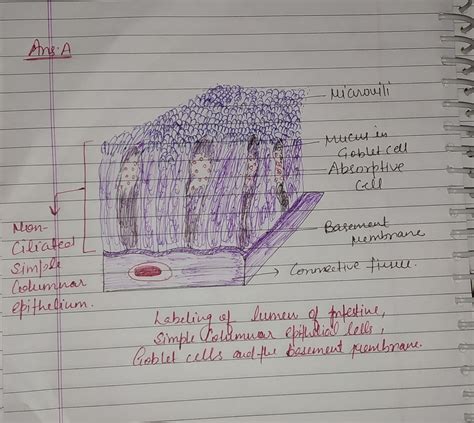 Ans. A
Microvili
Mucus in
Goblet cell
Absorptive
Cell
Basement
membrane
Connective tissue.
Non-
Ciliated
Simple
Columnar
epithelium.
Labeling of lumen of intestine,
Simple Columnar epithelial cells,
Goblet cells and the Basement membrane.